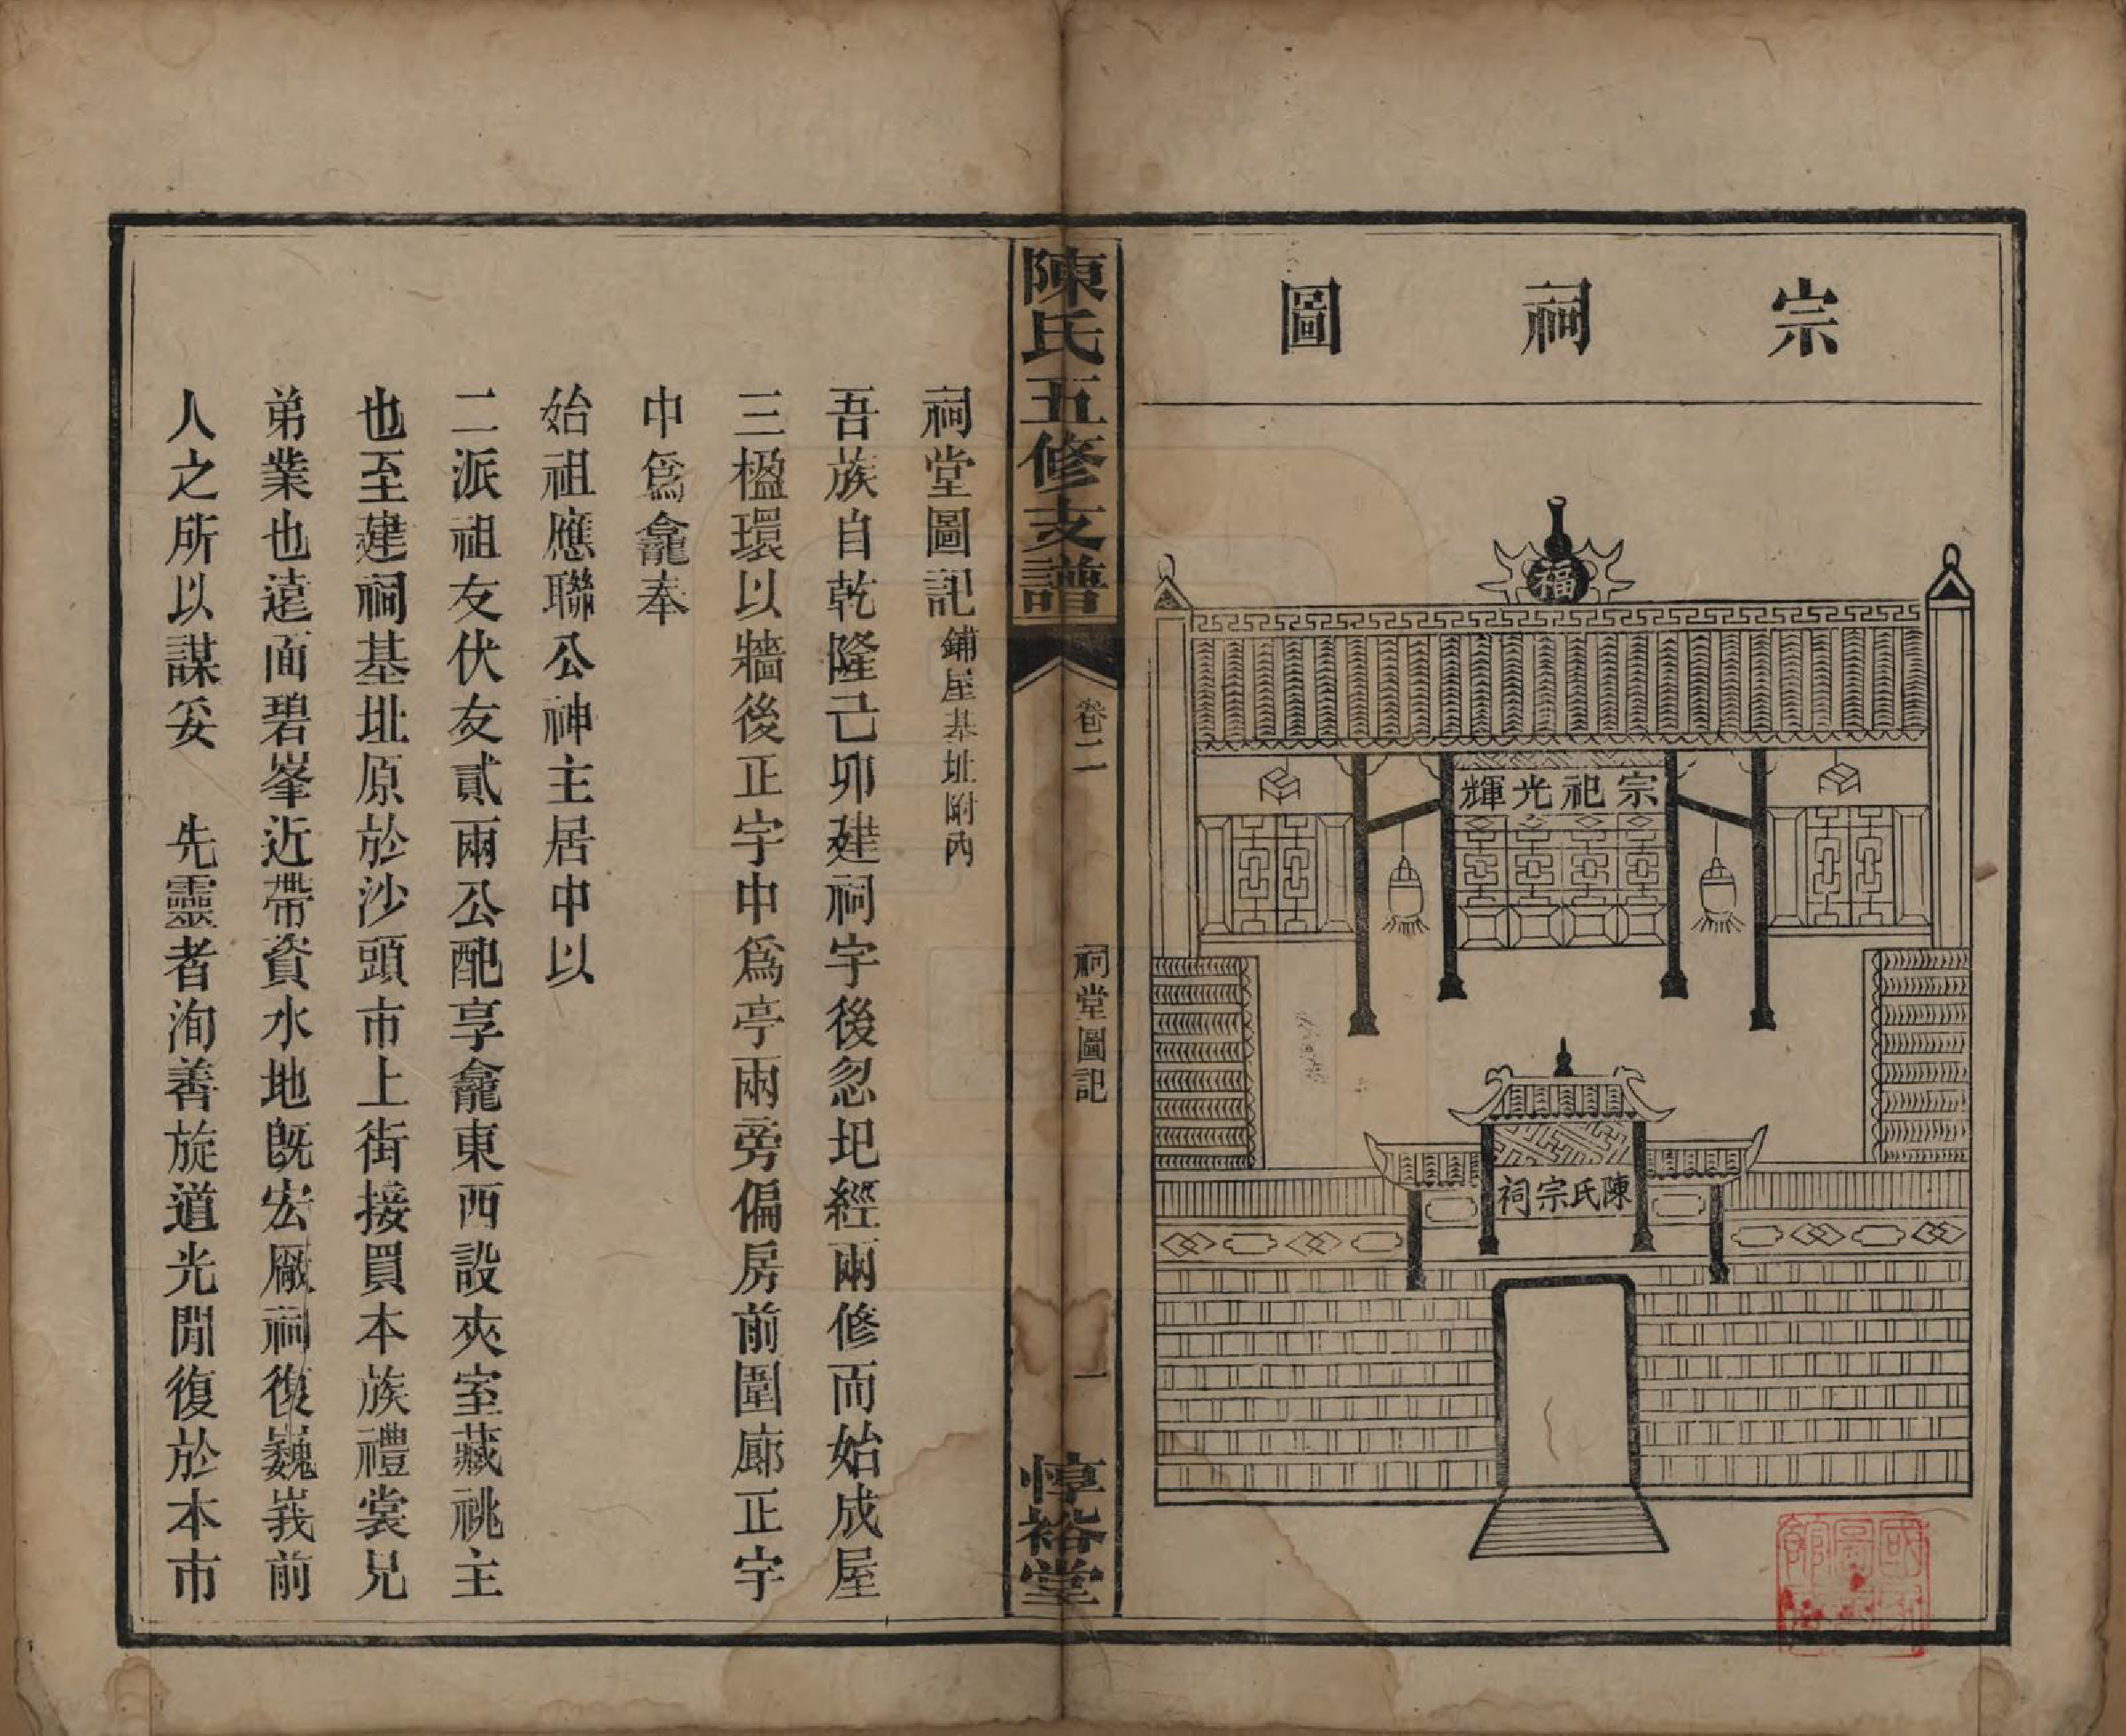 宗祠圖
福
宗祀光輝
陳氏宗祠
陳氏五修支譜
卷二
祠堂圖記
一
惇裕堂
祠堂圖記鋪屋基址附內
吾族自乾隆己卯建祠宇後忽圯經兩修而始成屋
三楹環以牆後正宇中爲亭兩旁偏房前圍廊正宇
中爲龕奉
始祖應聯公神主居中以
二派祖友伏友貳兩公配享龕東西設夾室藏祧主
也至建祠基址原於沙頭市上街接買本族禮裳兄
弟業也遠面碧峯近帶資水地旣宏厰祠復巍峩前
人之所以謀妥　先靈者洵善旋道光閒復於本市